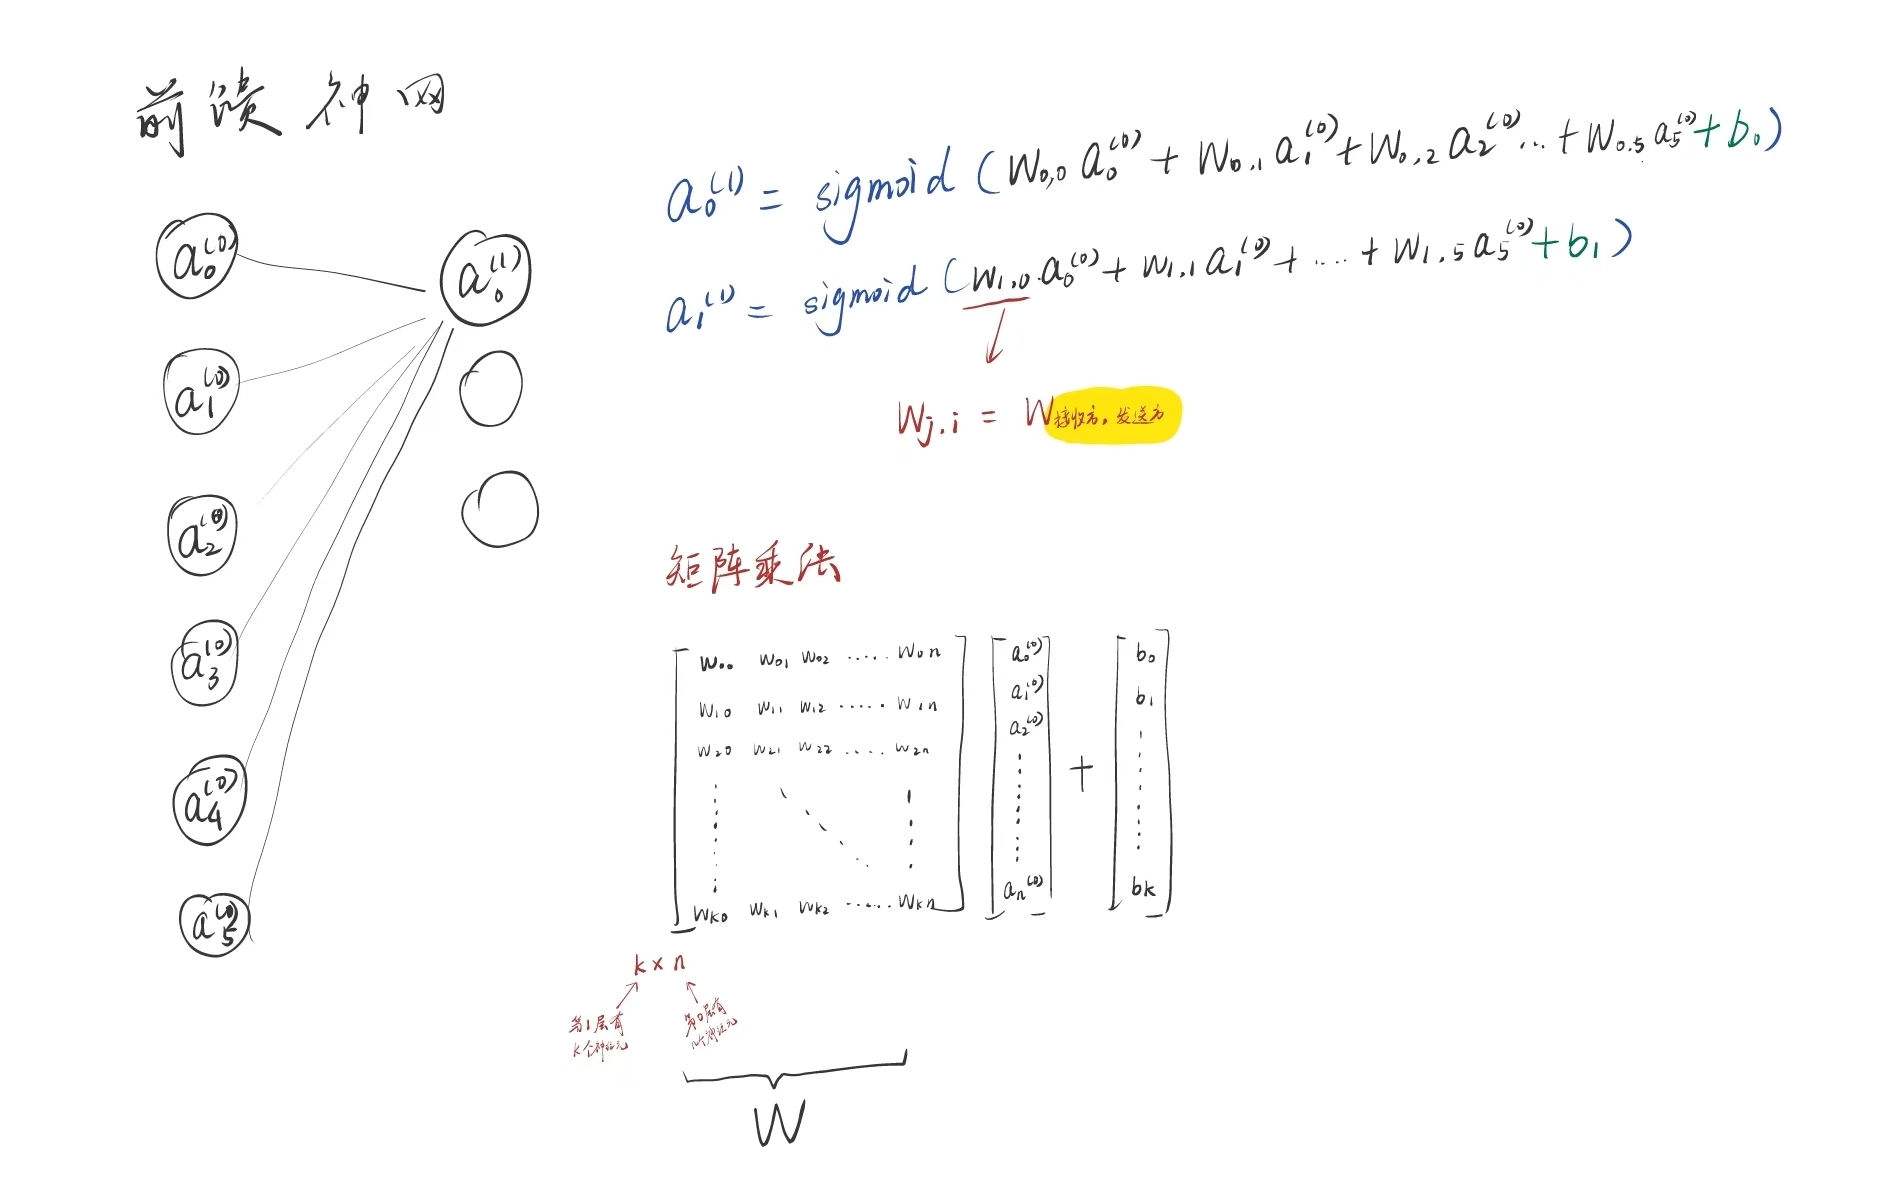 前馈神网
a₀⁽⁰⁾
a₁⁽⁰⁾
a₂⁽⁰⁾
a₃⁽⁰⁾
a₄⁽⁰⁾
a₅⁽⁰⁾
a₀⁽¹⁾
a₀⁽¹⁾ = sigmoid (W₀,₀ a₀⁽⁰⁾ + W₀.₁ a₁⁽⁰⁾ + W₀,₂ a₂⁽⁰⁾ ... + W₀.₅ a₅⁽⁰⁾ + b₀)
a₁⁽¹⁾ = sigmoid (W₁.₀.a₀⁽⁰⁾ + W₁.₁ a₁⁽⁰⁾ + .... + W₁.₅ a₅⁽⁰⁾ + b₁)
Wj.i = W接收方,发送方
矩阵乘法
W₀₀ W₀₁ W₀₂ ..... W₀n a₀⁽⁰⁾ b₀
W₁₀ W₁₁ W₁₂ ..... W₁n a₁⁽⁰⁾ b₁
W₂₀ W₂₁ W₂₂ .... W₂n a₂⁽⁰⁾
+
Wk₀ Wk₁ Wk₂ ..... Wkn an⁽⁰⁾ bk
k × n
第1层有
k个神经元
第0层有
n个神经元
W